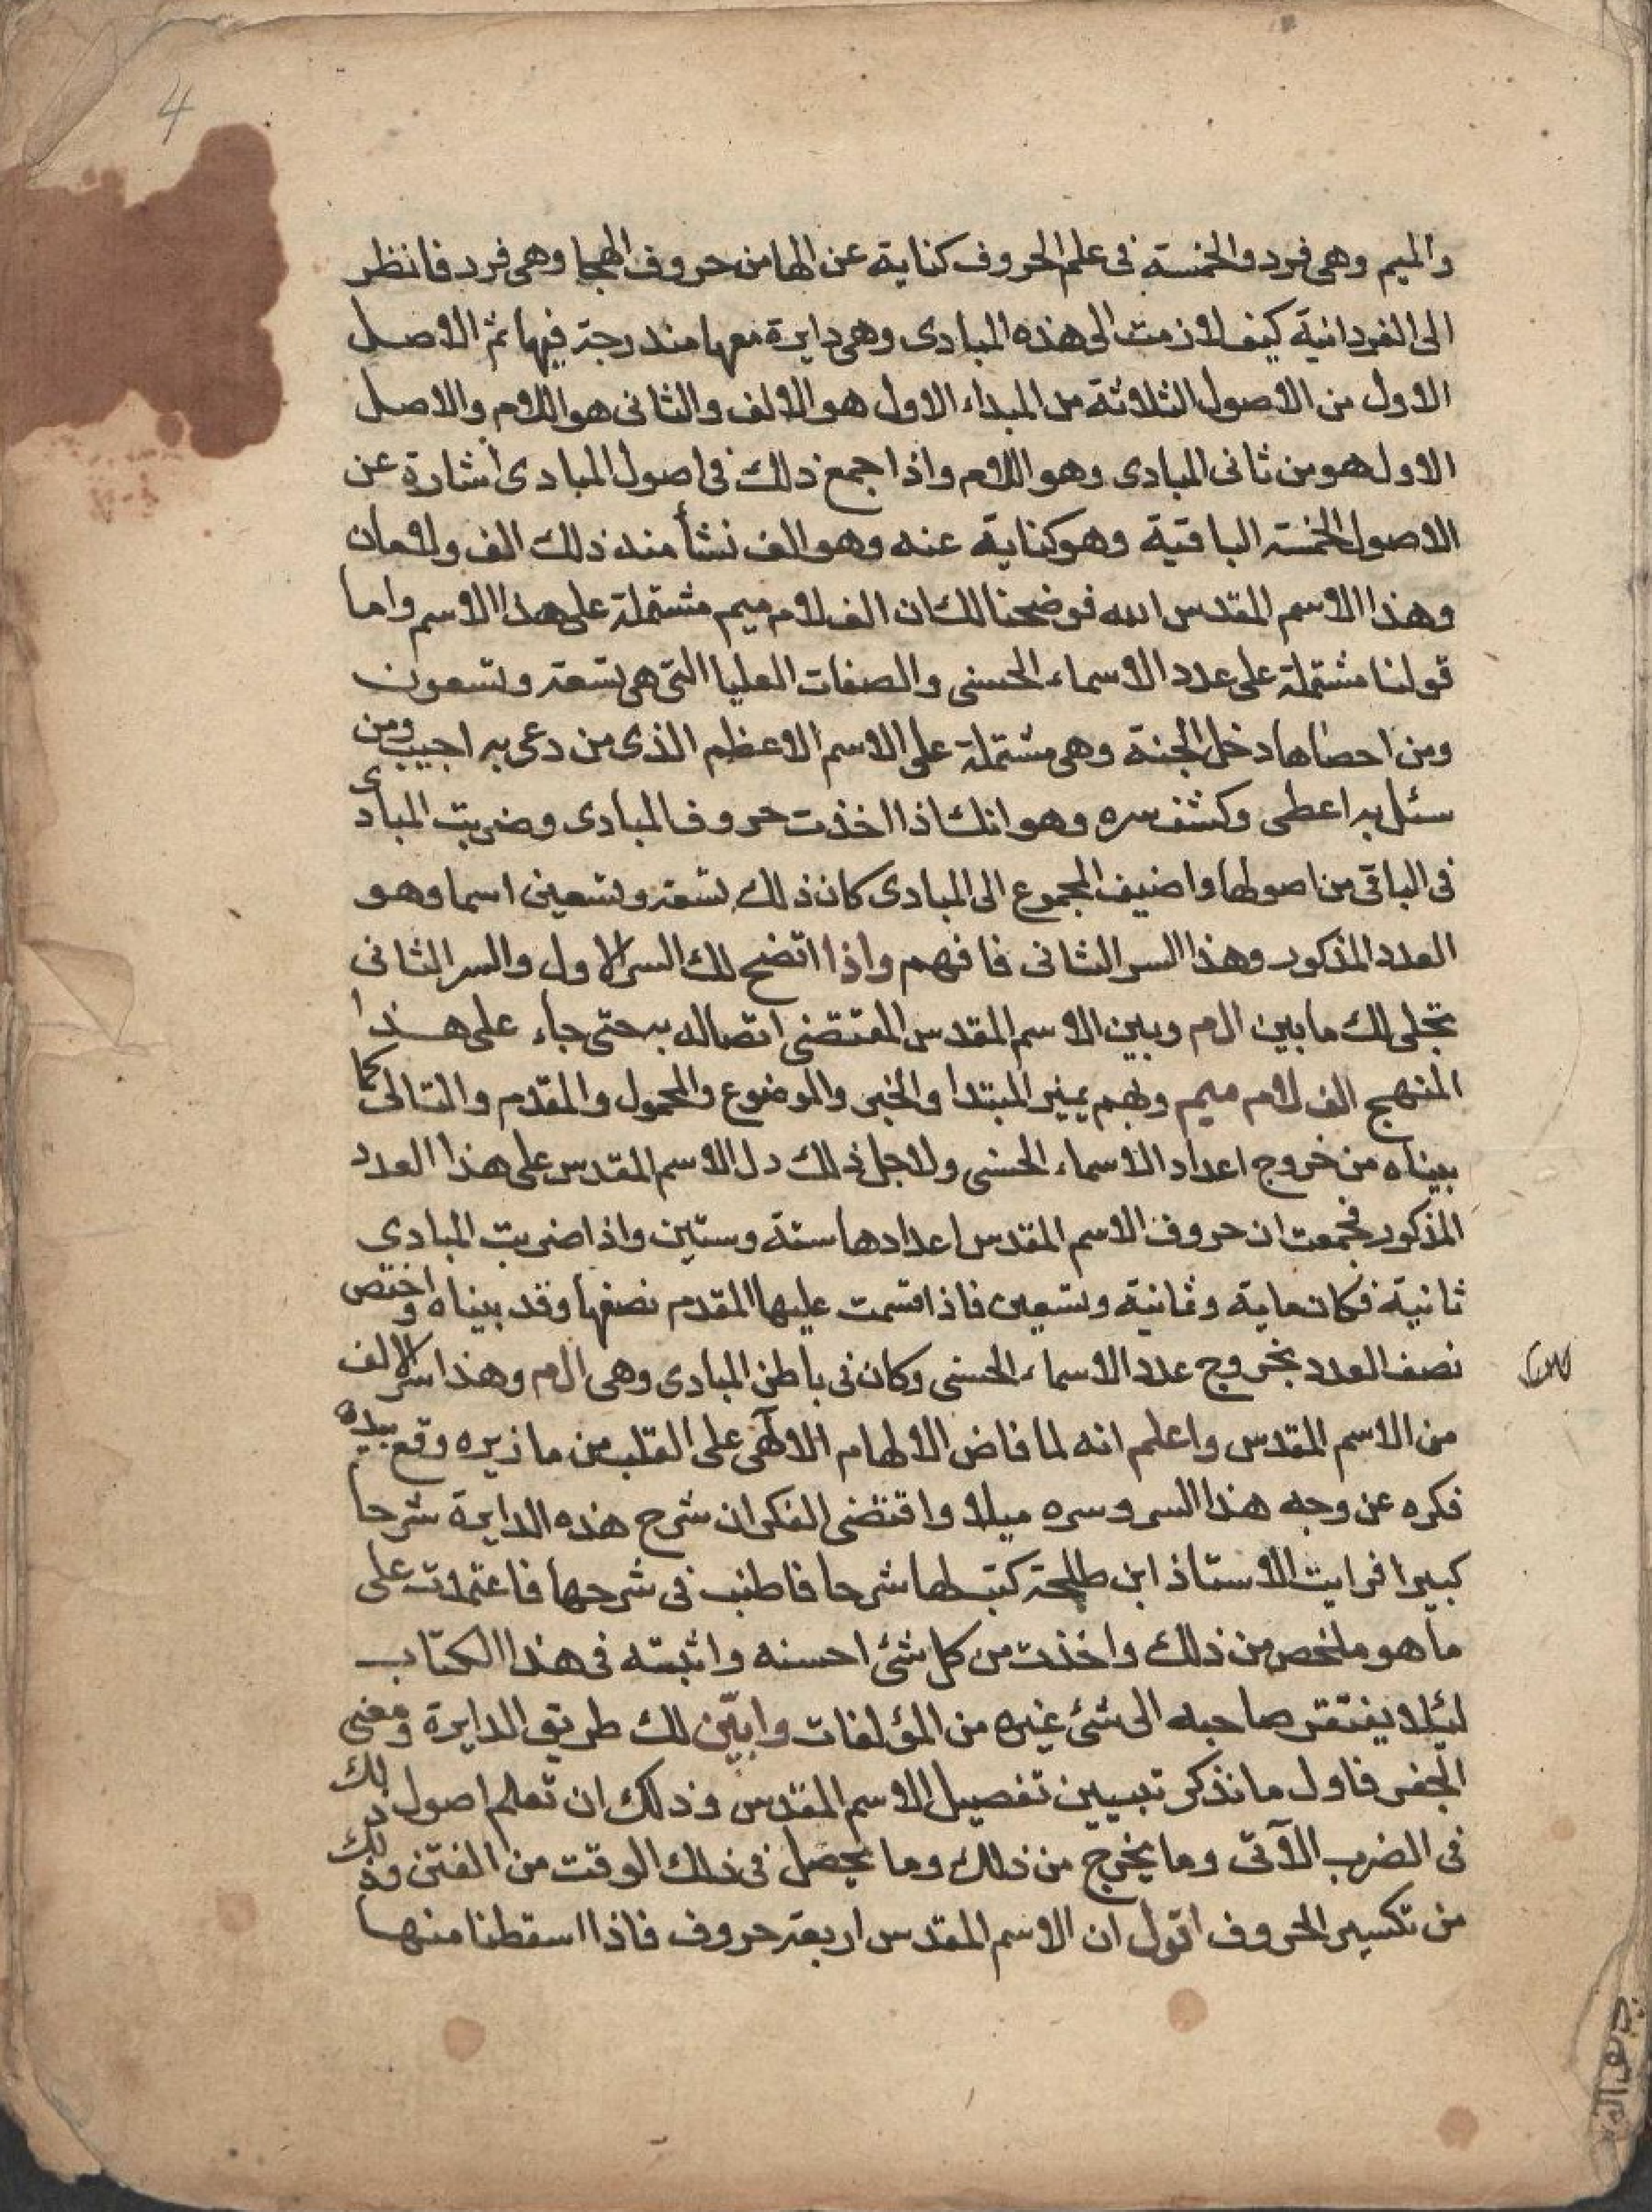 4
والميم وهى فرد والخمسة فى علم الحروف كناية عن الها من حروف الهجا وهى فرد فانظر
الى الفردانية كيف لازمت الى هذه المبادى وهى دايرة معها مندرجة فيها ثم الاصل
الاول من الاصول الثلاثة من المبداء الاول هو الالف والثانى هو اللام والاصل
الاول هو من ثانى المبادى وهو اللام واذا جمع ذلك فى اصول المبادى اشارة عن
الاصول الخمسة الباقية وهو كناية عنه وهو الف نشأ منه ذلك الف ولامان
وهذا الاسم المقدس الله فوضحنا لك ان الف لام ميم مشتملة على هذا الاسم واما
قولنا مشتملة على عدد الاسماء الحسنى والصفات العليا التى هى تسعة وتسعون
ومن احصاها دخل الجنة وهى مشتملة على الاسم الاعظم الذى من دعى به اجيب ومن
سئل به اعطى وكشف سره وهو انك اذا اخذت حروف المبادى وضربت المبادى
فى الباقى من اصولها واضيف المجموع الى المبادى كان ذلك تسعة وتسعين اسما وهو
العدد المذكور وهذا السر الثانى فافهم واذا اتضح لك السر الاول والسر الثانى
تجلى لك ما بين الم وبين الاسم المقدس المقتضى اتصاله به حتى جاء على هذا
المنهج الف لام ميم وبهم يميز المبتدا والخبر والموضوع والمحمول والمقدم والتالى كما
بيناه من خروج اعداد الاسماء الحسنى ولاجل ذلك دل الاسم المقدس على هذا العدد
المذكور فجمعت ان حروف الاسم المقدس اعدادها ستة وستين واذا ضربت المبادى
ثانية فكانت ماية وثمانية وتسعين فاذا قسمت عليها المقدم نصفها وقد بيناه واختص
نصف العدد بخروج عدد الاسماء الحسنى وكان فى باطن المبادى وهى الم وهذا سر الالف
من الاسم المقدس واعلم انه لما فاض الالهام الالهى على القلب من ما زبره وقع بيده
فكره عن وجه هذا السر وسره ميلا واقتضى الفكر ان شرح هذه الدايرة شرحا
كبيرا فرايت الاستاذ ابن طلحة كتب لها شرحا فاطنب فى شرحها فاعتمدت على
ما هو ملخص من ذلك واخذت من كل شئ احسنه واثبته فى هذا الكتاب
لئلا يفتقر صاحبه الى شئ غيره من المؤلفات وابيّن لك طريق الدايرة ومعنى
الجفر فاول ما نذكر تبيين تفصيل الاسم المقدس وذلك ان تعلم اصول ذلك
فى الضرب الآتى وما يخرج من ذلك وما يحصل فى ذلك الوقت من الفتن وذلك
من تكسير الحروف اقول ان الاسم المقدس اربعة حروف فاذا اسقطنا منها